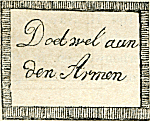 Doet wel aan
den Armen